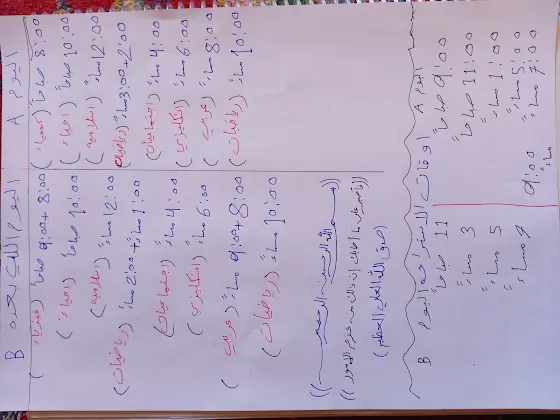 اليوم A
8:00 صباحاً (فيزياء)
10:00 صباحاً (احياء)
12:00 مساءً (اسلامية)
2:00+3:00 مساءً (رياضيات)
4:00 مساءً (اجتماعيات)
6:00 مساءً (انكليزي)
8:00 مساءً (عربي)
10:00 مساءً (رياضيات)
اليوم اللي بعده B
8:00+9:00 صباحاً (فيزياء)
10:00 صباحاً (احياء)
12:00 مساءً (اسلامية)
1:00+2:00 مساءً (رياضيات)
4:00 مساءً (اجتماعيات)
6:00 مساءً (انكليزي)
8:00+9:00 مساءً (عربي)
10:00 مساءً (رياضيات)
((بسم الله الرحمن الرحيم))
((واصبر على ما اصابك ان ذلك من عزم الامور))
(صدق الله العلي العظيم)
اوقات الاستراحة
اليوم A
9:00 صباحاً
11:00 صباحاً
1:00 مساءً
5:00 مساءً
7:00 مساءً
9:00 مساءً
اليوم B
11 صباحاً
3 مساءً
5 مساءً
7 مساءً